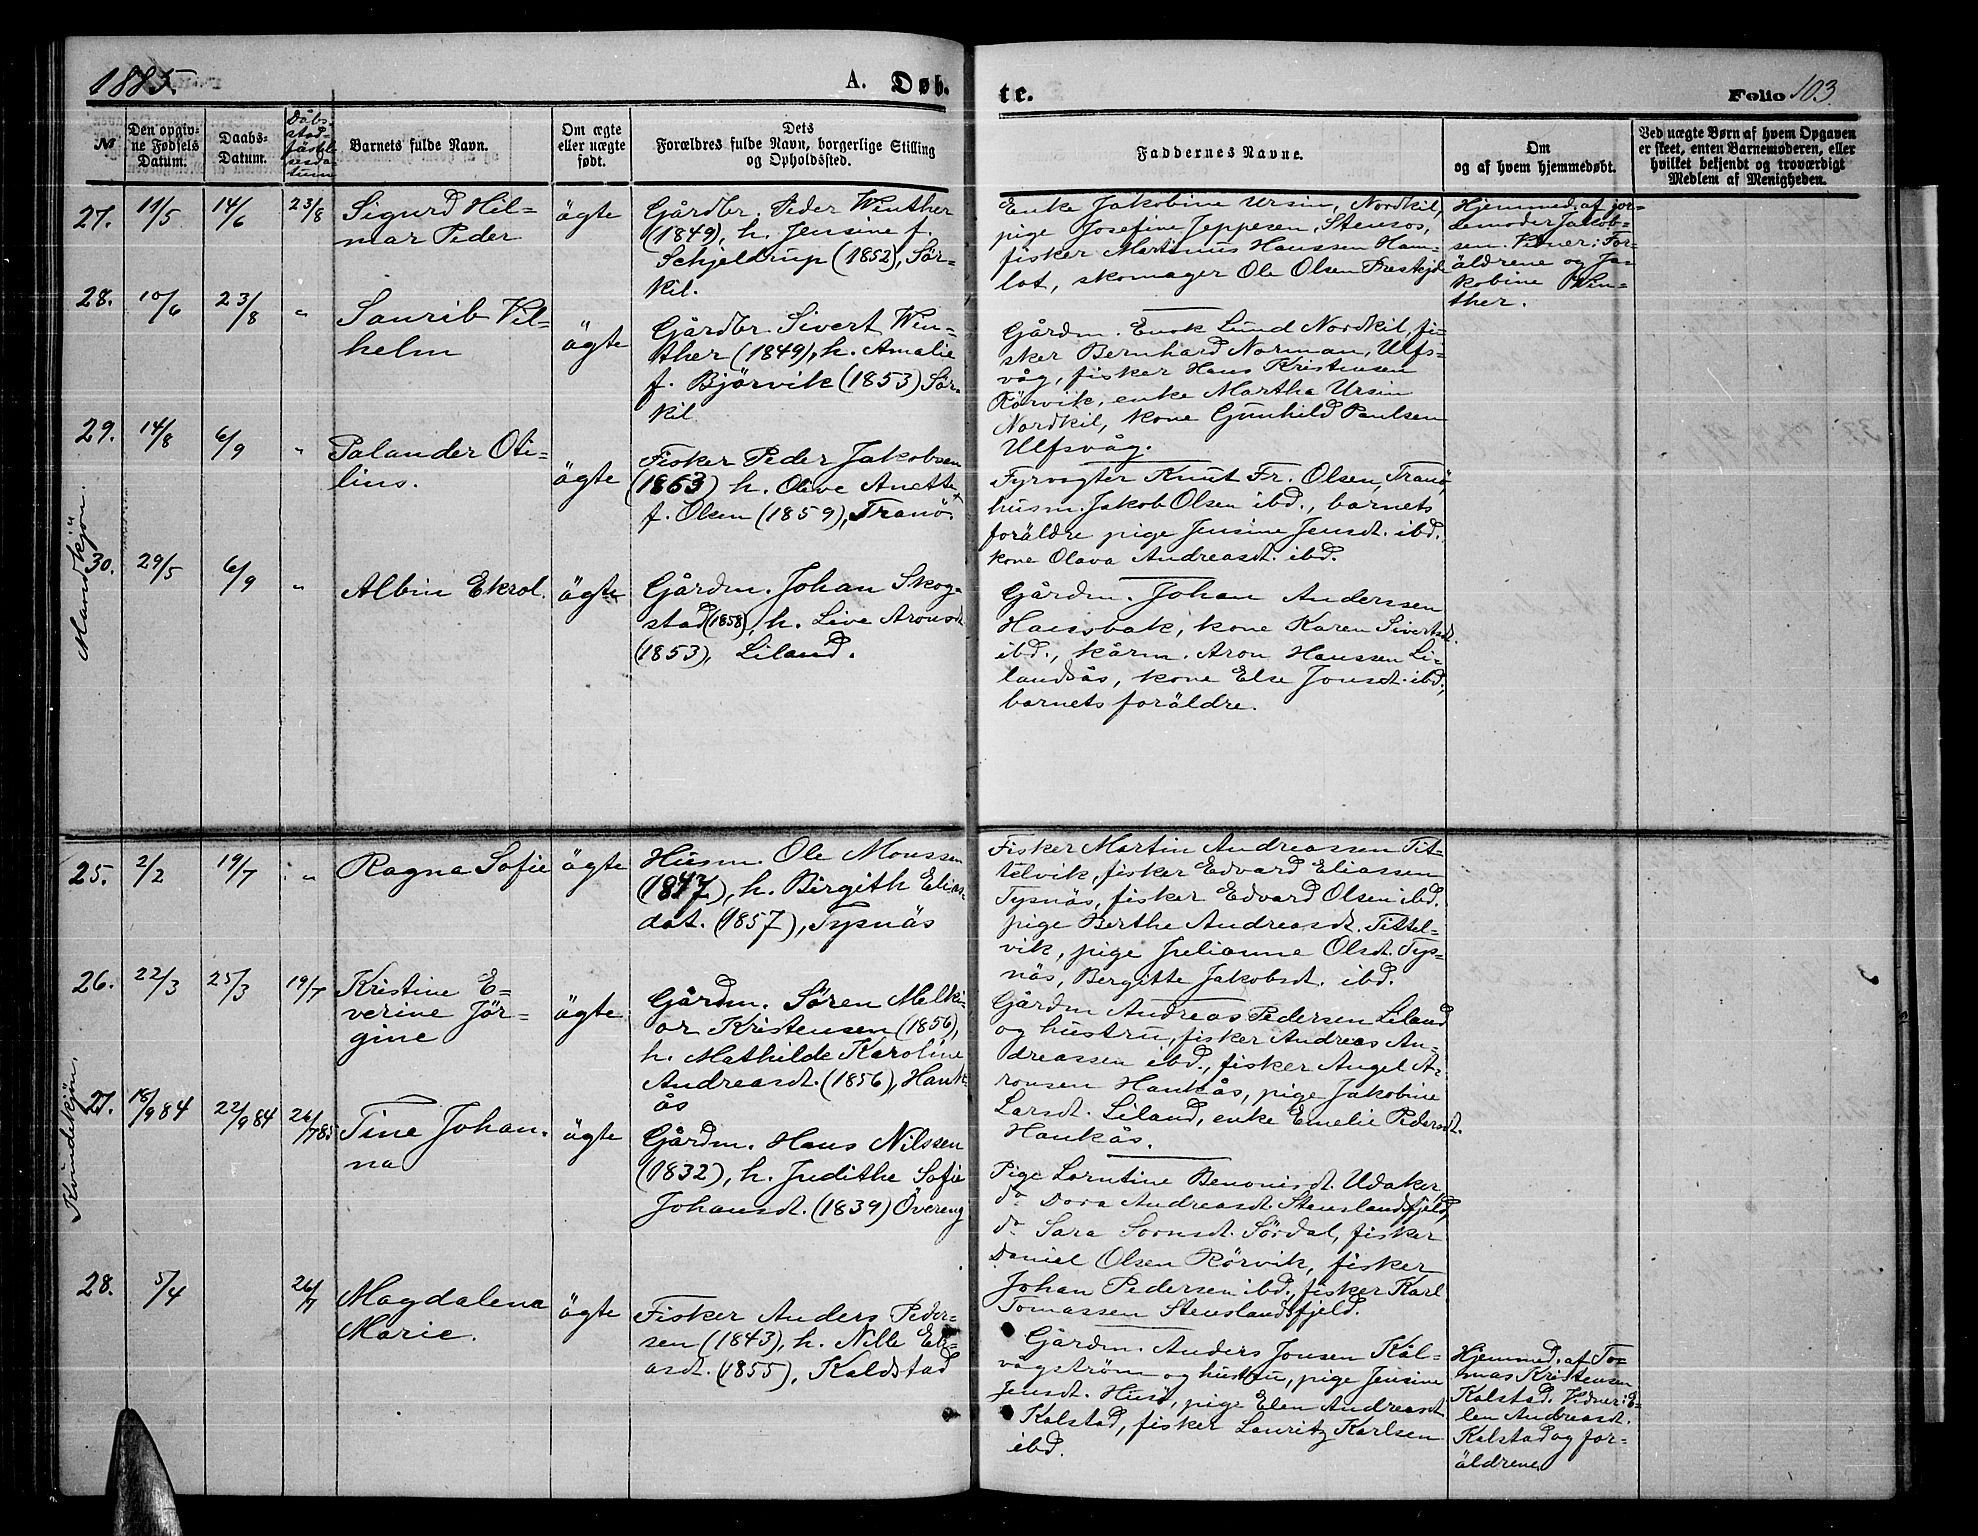 1885.
A. Døb-
te.
Folio 103
№
Den opgiv-
ne Fødsels
Datum.
Daabs-
Datum.
Dåbs-
stad-
fästel
sesda
tum
Barnets fulde Navn.
Om ægte
eller uægte
født.
Dets
Forældres fulde Navn, borgerlige Stilling
og Opholdssted.
Faddernes Navne.
Om
og af hvem hjemmedøbt.
Ved uægte Børn af hvem Opgaven
er skeet, enten Barnemoderen, eller
hvilket bekjendt og troværdigt
Medlem af Menigheden.
Mandkjøn.
27. 11/5 14/6 23/8
Sigurd Hil-
mar Peder
ägte
Gårdbr. Peder Winther
(1849), h. Jensine f.
Schjeldrup (1852), Sör-
kil.
Enke Jakobine Ursin, Nordkil,
pige Josefine Jeppesen, Stensos,
fisker Martinus Hanssen Ham-
lot, skomager Ole Olsen Prestkjde
Hjemmed. af jor-
demoder Jakob-
sen. Vdner: For-
äldrene og Ja-
kobine Win-
ther.
28. 10/6 23/8 "
Saurib Vil-
helm
ägte
Gårdbr. Sivert Win-
ther (1849), h. Amalie
f. Björvik (1853) Sör-
kil
Gårdm. Enok Lund Nordkil, fi-
sker Bernhard Norman, Ulfs-
våg, fisker Hans Kristensen
Rörvik, enke Martha Ursin
Nordkil, kone Gunhild Paulsen
Ulfsvåg.
29. 14/8 6/9 "
Palander Oti-
lius.
ägte
Fisker Peder Jakobsen
(1863) h. Olive Anette
f. Olsen (1859), Tranö.
Fyrvogter Knut Fr. Olsen, Tranö,
husm. Jakob Olsen ibd., barnets
foräldre pige Jensine Jensdt. ibd.,
kone Olava Andreasdt. ibd.
30. 29/5 6/9 "
Albin Ekrol.
ägte
Gårdm. Johan Skog-
stad (1858), h. Live Aronsdt
(1853), Liland.
Gårdm. Johan Anderssen
Haussbak, kone Karen Sivertsdt.
ibd., kårm. Aron Hanssen Li-
landsås, kone Else Jonsdt. ibd.,
barnets foräldre.
Kvindekjøn.
25. 2/2 19/7 "
Ragna Sofie
ägte
Husm. Ole Monssen
(1847), h. Birgith Elias-
dat. (1857), Tysnäs
Fisker Martin Andreassen Tit-
telvik, fisker Edvard Eliassen
Tysnäs, fisker Edvard Olsen ibd.
pige Berthe Andreasdt. Tittel-
vik, pige Julianne Olsdt. Tys-
näs, Bergitte Jakobsdt. ibd.
26. 22/3 25/3 19/7
Kristine E-
verine Jör-
gine
ägte
Gårdm. Sören Melki-
or Kristensen (1856),
h. Mathilde Karoline
Andreasdt. (1856), Hank-
ås
Gårdm Andreas Pedersen Liland
og hustru, fisker Andreas An-
dreassen ibd., fisker Angel A-
ronsen Hankås, pige Jakobine
Larsdt. Liland, enke Emelie Pedersdt.
Hankås.
27. 18/9 84 22/9 84 26/7 85
Tine Johan-
na
ägte
Gårdm. Hans Nilssen
(1832), h. Judithe Sofie
Johansdt. (1839) Övereng
Pige Lorntine Benonisdt. Udaker,
do Dora Andreasdt. Stenslandsfjeld,
do Sara Sornsdt. Sördal, fisker
Daniel Olsen Rörvik, fisker
Johan Pedersen ibd., fisker Karl
Tomassen Stenslandsfjeld.
28. 5/4 26/7
Magdalena
Marie.
ägte
Fisker Anders Peder-
sen (1843), h. Nille Eli-
asdt. (1855), Kaldstad
Gårdm. Anders Jonsen Kal-
vågström og hustru, pige Jensine
Jensdt. Husö, pige Elen Andreasdt
Kalstad, fisker Lauritz Karlsen
ibd.
Hjemmed. af To-
mas Kristensen
Kalstad. Vidner: E-
len Andreasdt.
Kalstad og for-
äldrene